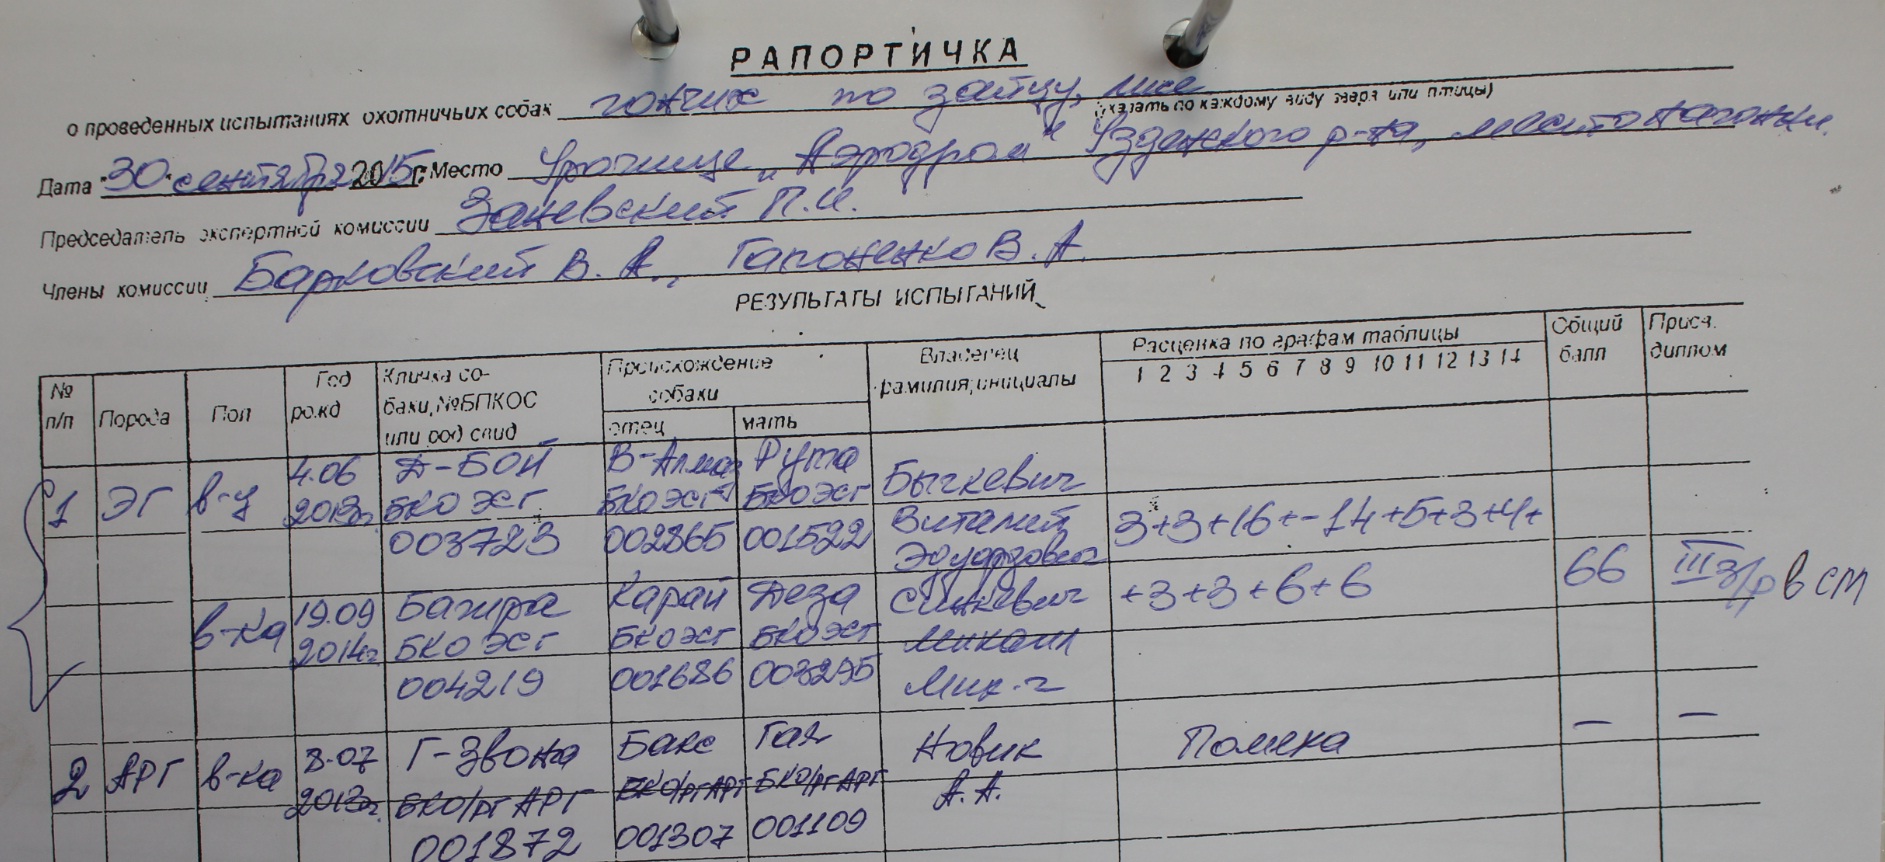 РАПОРТИЧКА
о проведенных испытаниях охотничьих собак гончих по зайцу, лисе
(указать по каждому виду зверя или птицы)
Дата "30" сентября 2015г. Место Урочище "Аэродром" Узденского р-на, место нагонки.
Председатель экспертной комиссии Заневский П.И.
Члены комиссии Барковский В.А., Гапоненко В.А.
РЕЗУЛЬТАТЫ ИСПЫТАНИЙ
№ п/п Порода Пол Год рожд Кличка со-баки, №БПКОС или род свид Происхождение собаки отец мать Владелец фамилия, инициалы Расценка по графам таблицы Общий балл Присв. диплом
1 2 3 4 5 6 7 8 9 10 11 12 13 14
4.06 Д-БОЙ В-Алмаз Рута Бычкевич
1 ЭГ в-ц 2013г. БКО ЭСГ БКОЭСГ БКОЭСГ Виталий 3+3+16+-14+5+3+4+
003723 002865 001522 Эдуардович
19.09 Багира Карай Деза Синкевич +3+3+6+6 66 III з/р в см
в-ка 2014г. БКО ЭСГ БКОЭСГ БКОЭСГ Михаил
004219 001686 003295 Мих-ч
8.07 Г-Звона Бакс Гая Новик Помека — —
2 АРГ в-ка 2013г. БКО/рг АРГ БКО/ргАРГ БКО/ргАРГ А.А.
001872 001307 001109